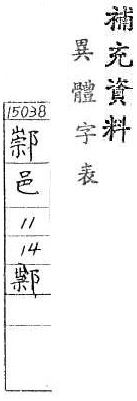 補充資料
異體字表
15038
邑
11
14